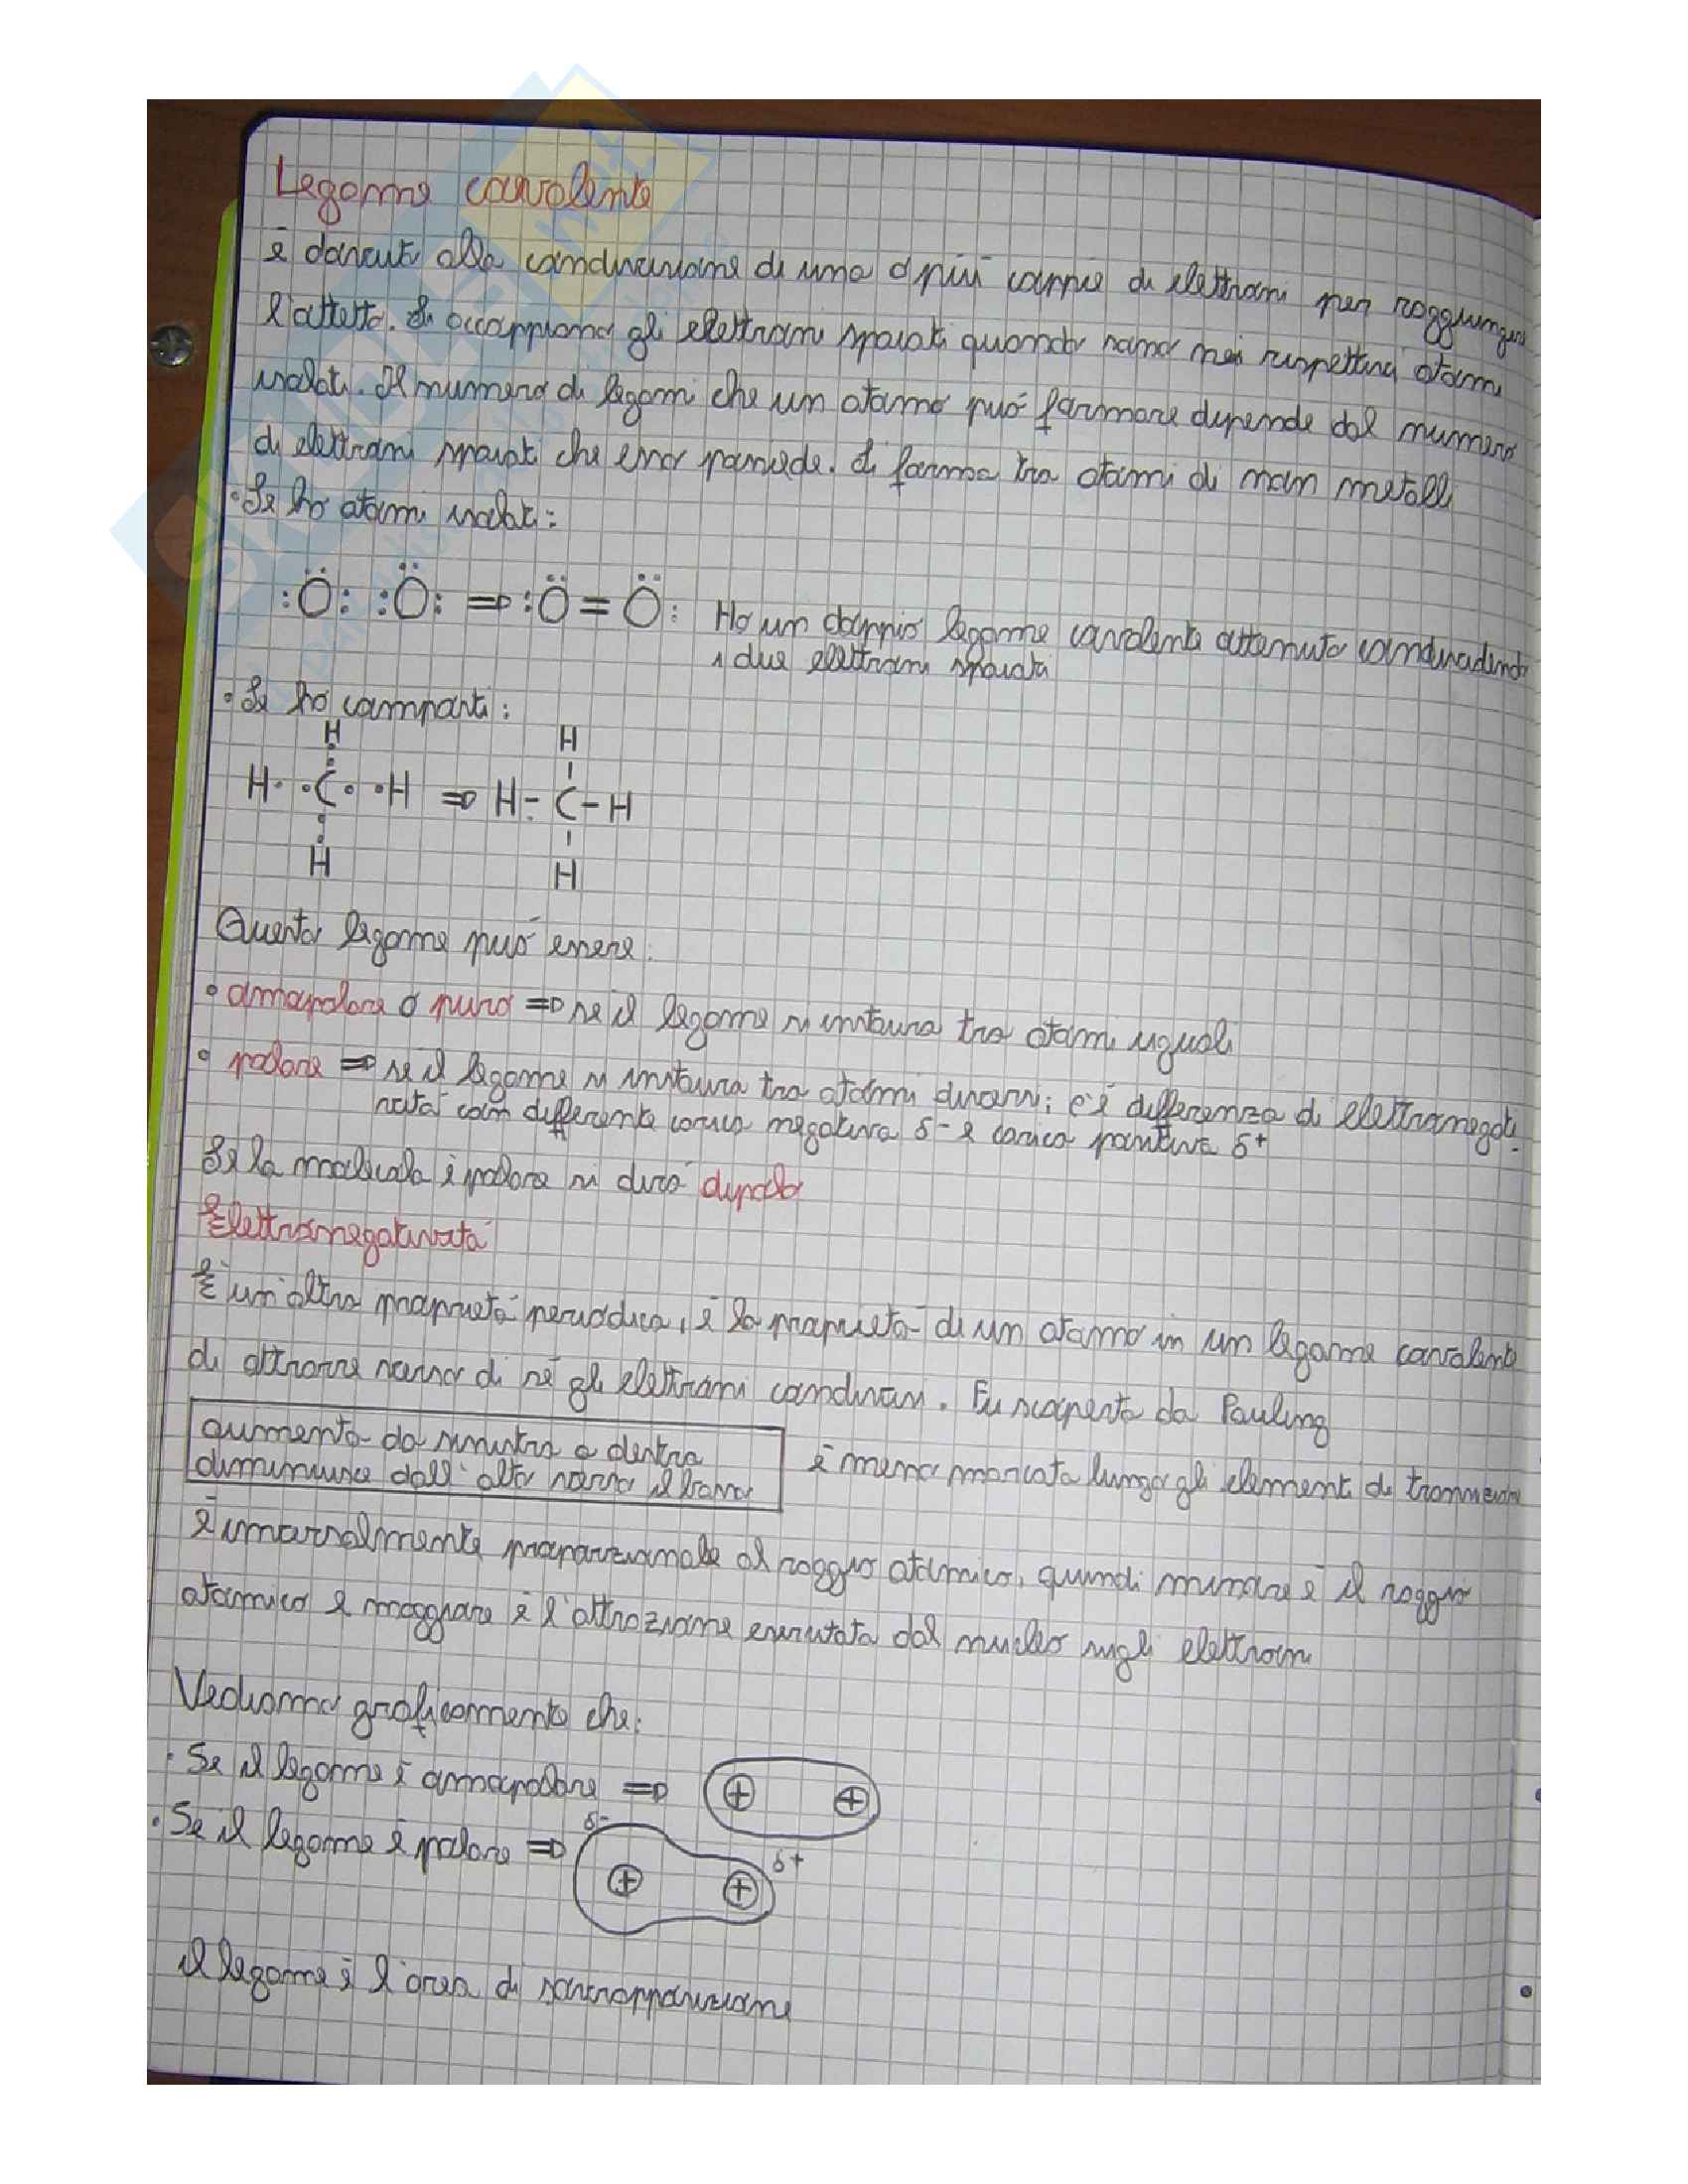 Legame covalente
è dovuto alla condivisione di una o più coppie di elettroni per raggiungere
l'ottetto. Si accoppiano gli elettroni spaiati quando sono nei rispettivi atomi
isolati. Il numero di legami che un atomo può formare dipende dal numero
di elettroni spaiati che esso possiede. Si forma tra atomi di non metalli
• Se ho atomi isolati:
:Ö: :Ö: ⇒ :Ö = Ö: Ho un doppio legame covalente ottenuto condividendo
i due elettroni spaiati
• Se ho composti:
H H
H· ·C· ·H ⇒ H - C - H
H H
Questo legame può essere:
• omopolare o puro ⇒ se il legame si instaura tra atomi uguali
• polare ⇒ se il legame si instaura tra atomi diversi; c'è differenza di elettronegati-
vità con differente carica negativa δ- e carica positiva δ+
Se la molecola è polare si dirà dipolo
Elettronegatività
È un'altra proprietà periodica, è la proprietà di un atomo in un legame covalente
di attrarre verso di sé gli elettroni condivisi. Fu scoperta da Pauling
aumenta da sinistra a destra
diminuisce dall'alto verso il basso
è meno marcata lungo gli elementi di transizione
È inversalmente proporzionale al raggio atomico, quindi minore è il raggio
atomico e maggiore è l'attrazione esercitata dal nucleo sugli elettroni
Vediamo graficamente che:
• Se il legame è omopolare ⇒ + +
• Se il legame è polare ⇒ δ- + + δ+
il legame è l'area di sovrapposizione